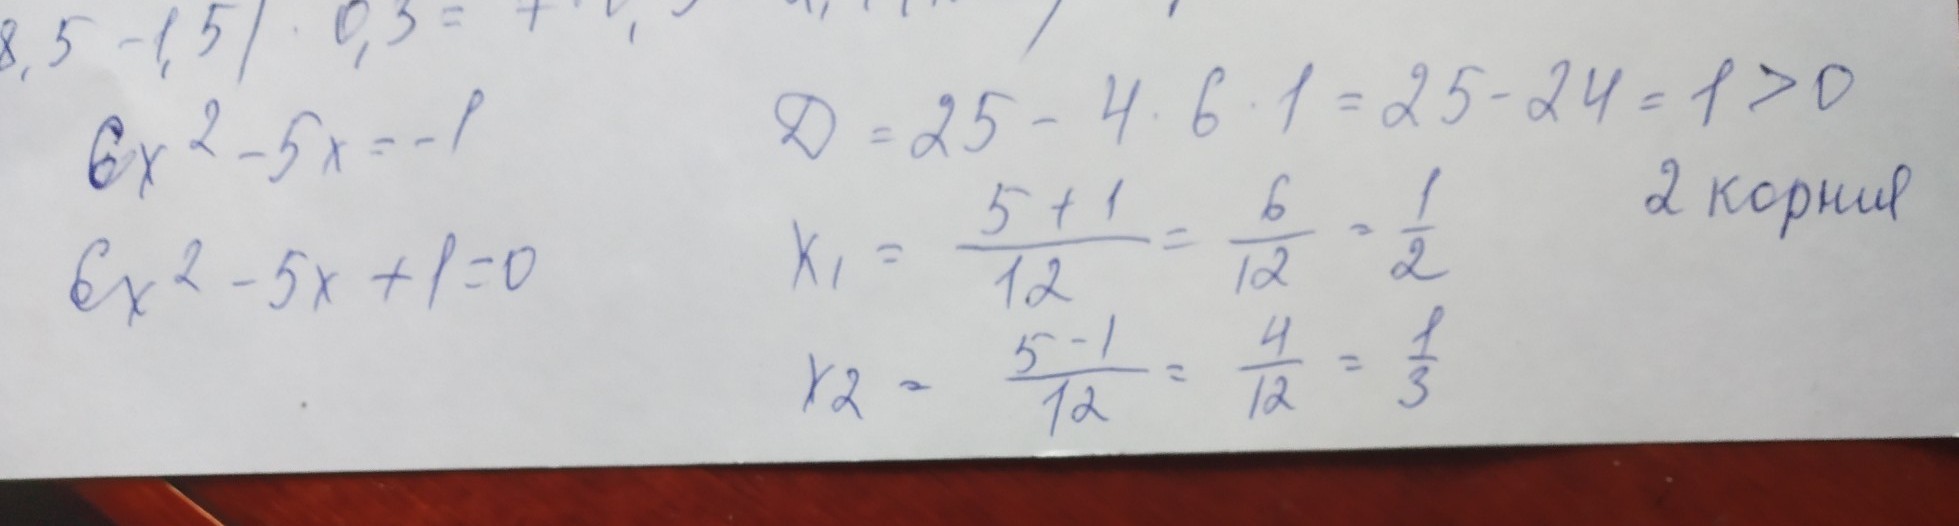 8,5 - 1,5) · 0,3 =
6x² - 5x = -1
6x² - 5x + 1 = 0
D = 25 - 4 · 6 · 1 = 25 - 24 = 1 > 0
2 корния
x₁ = (5 + 1)/12 = 6/12 = 1/2
x₂ = (5 - 1)/12 = 4/12 = 1/3